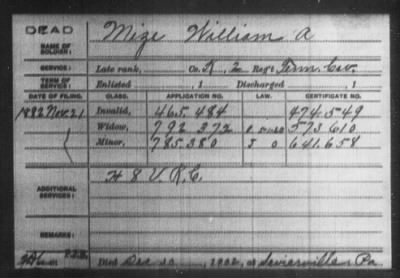 DEAD
NAME OF SOLDIER: Mize William A
SERVICE: Late rank, Co. K, 2 Reg't Tenn. Cav.
TERM OF SERVICE: Enlisted , 1 Discharged , 1
DATE OF FILING. CLASS. APPLICATION NO. LAW. CERTIFICATE NO.
1882 Nov. 21 Invalid, 465.484 474.549
Widow, 792 372 573 610
Minor, 785.380 641.658
ADDITIONAL SERVICES: H 8 V. R. C.
REMARKS:
Died Dec 1902, at Sevierville